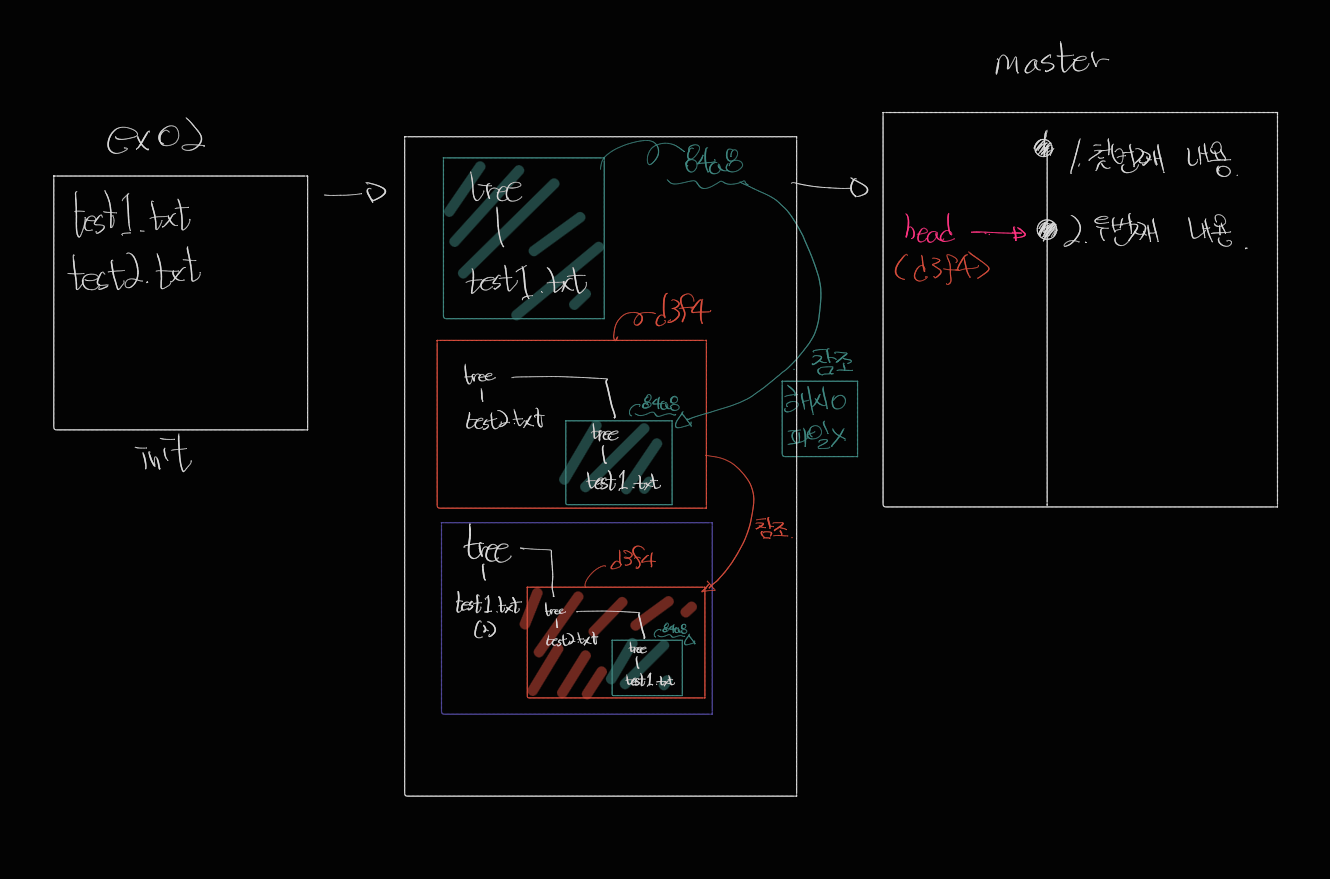 ex02
test1.txt
test2.txt
init
tree
test1.txt
84a8
d3f4
tree
test2.txt
84a8
tree
test1.txt
참조
해시O
파일X
참조.
tree
test1.txt
(2)
d3f4
tree
test2.txt
84a8
tree
test1.txt
master
1. 첫번째 내용.
head
(d3f4)
2. 두번째 내용.